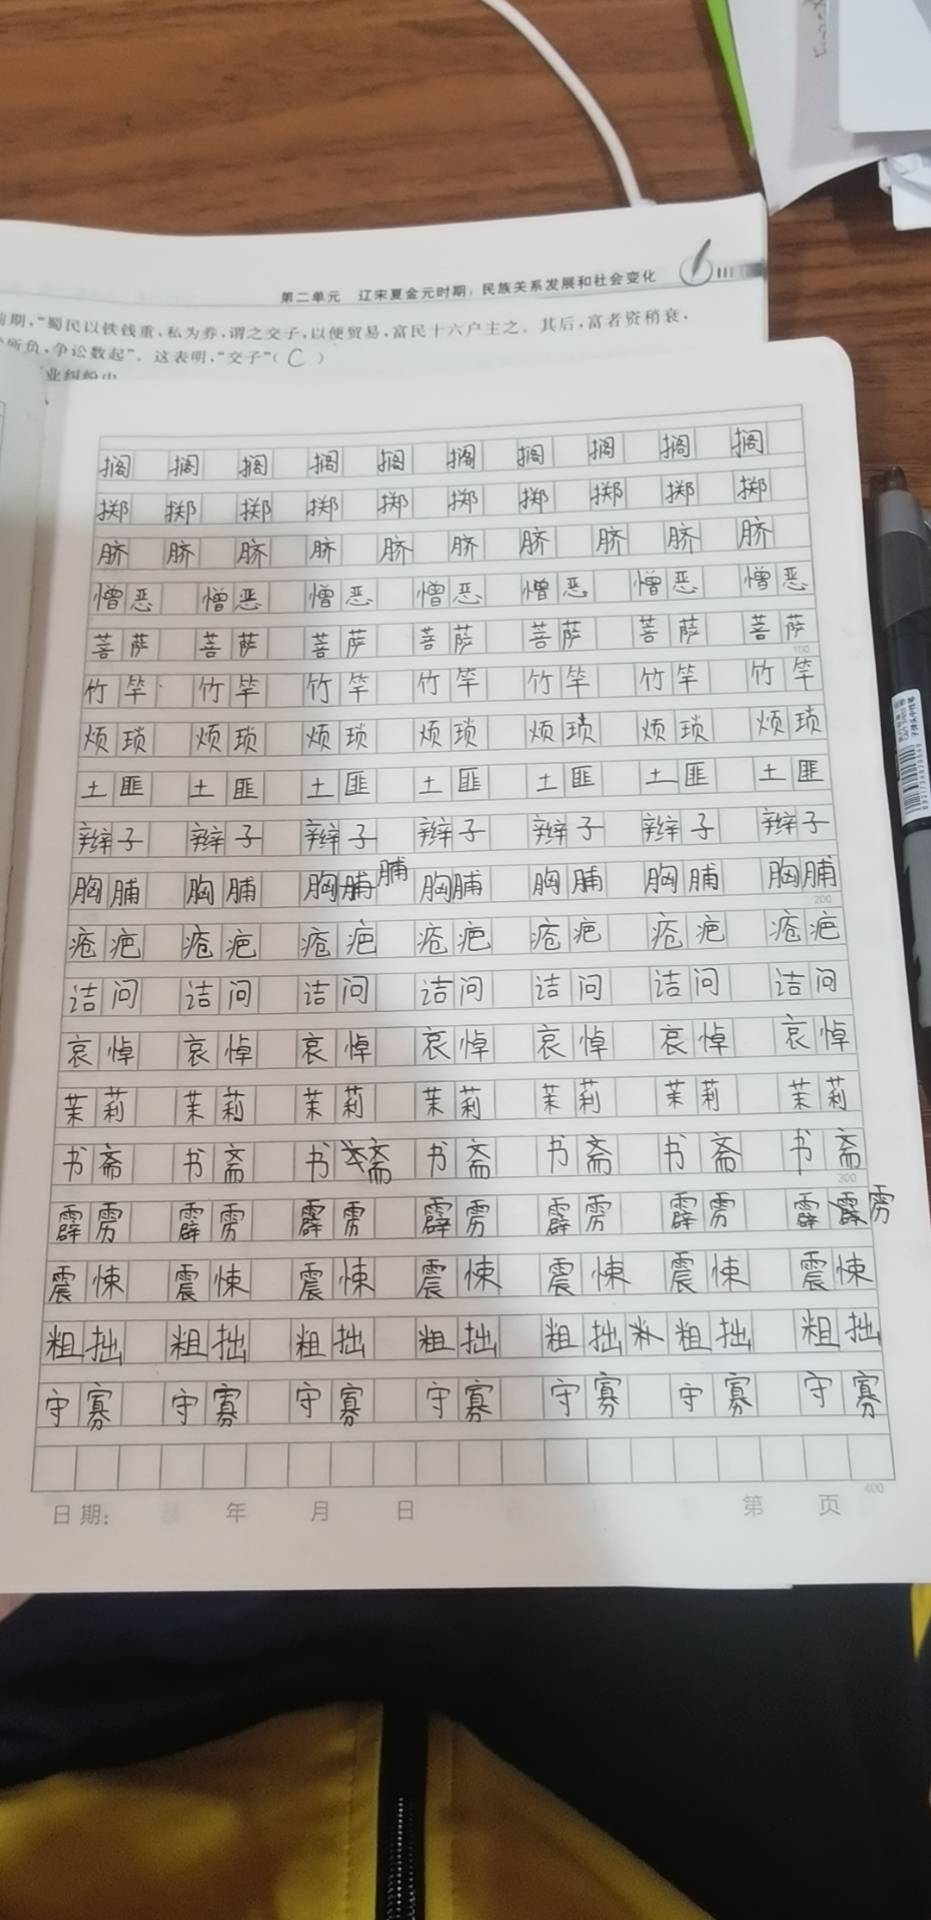 第二单元 辽宋夏金元时期:民族关系发展和社会变化
前期,“蜀民以铁钱重,私为券,谓之交子,以便贸易,富民十六户主之。其后,富者资稍衰,
所负,争讼数起”。这表明,“交子”( C )
业纠纷由
搁 搁 搁 搁 搁 搁 搁 搁 搁 搁
掷 掷 掷 掷 掷 掷 掷 掷 掷 掷
脐 脐 脐 脐 脐 脐 脐 脐 脐 脐
憎恶 憎恶 憎恶 憎恶 憎恶 憎恶 憎恶
菩萨 菩萨 菩萨 菩萨 菩萨 菩萨 菩萨
100
竹竿 竹竿 竹竿 竹竿 竹竿 竹竿 竹竿
烦琐 烦琐 烦琐 烦琐 烦琐 烦琐 烦琐
土匪 土匪 土匪 土匪 土匪 土匪 土匪
辫子 辫子 辫子 辫子 辫子 辫子 辫子
胸脯 胸脯 胸脯脯 胸脯 胸脯 胸脯 胸脯
200
疮疤 疮疤 疮疤 疮疤 疮疤 疮疤 疮疤
诘问 诘问 诘问 诘问 诘问 诘问 诘问
哀悼 哀悼 哀悼 哀悼 哀悼 哀悼 哀悼
茉莉 茉莉 茉莉 茉莉 茉莉 茉莉 茉莉
书斋 书斋 书斋 书斋 书斋 书斋 书斋
300
霹雳 霹雳 霹雳 霹雳 霹雳 霹雳 霹雳
震悚 震悚 震悚 震悚 震悚 震悚 震悚
粗拙 粗拙 粗拙 粗拙 粗拙 粗拙 粗拙
守寡 守寡 守寡 守寡 守寡 守寡 守寡
400
日期: 年 月 日 第 页